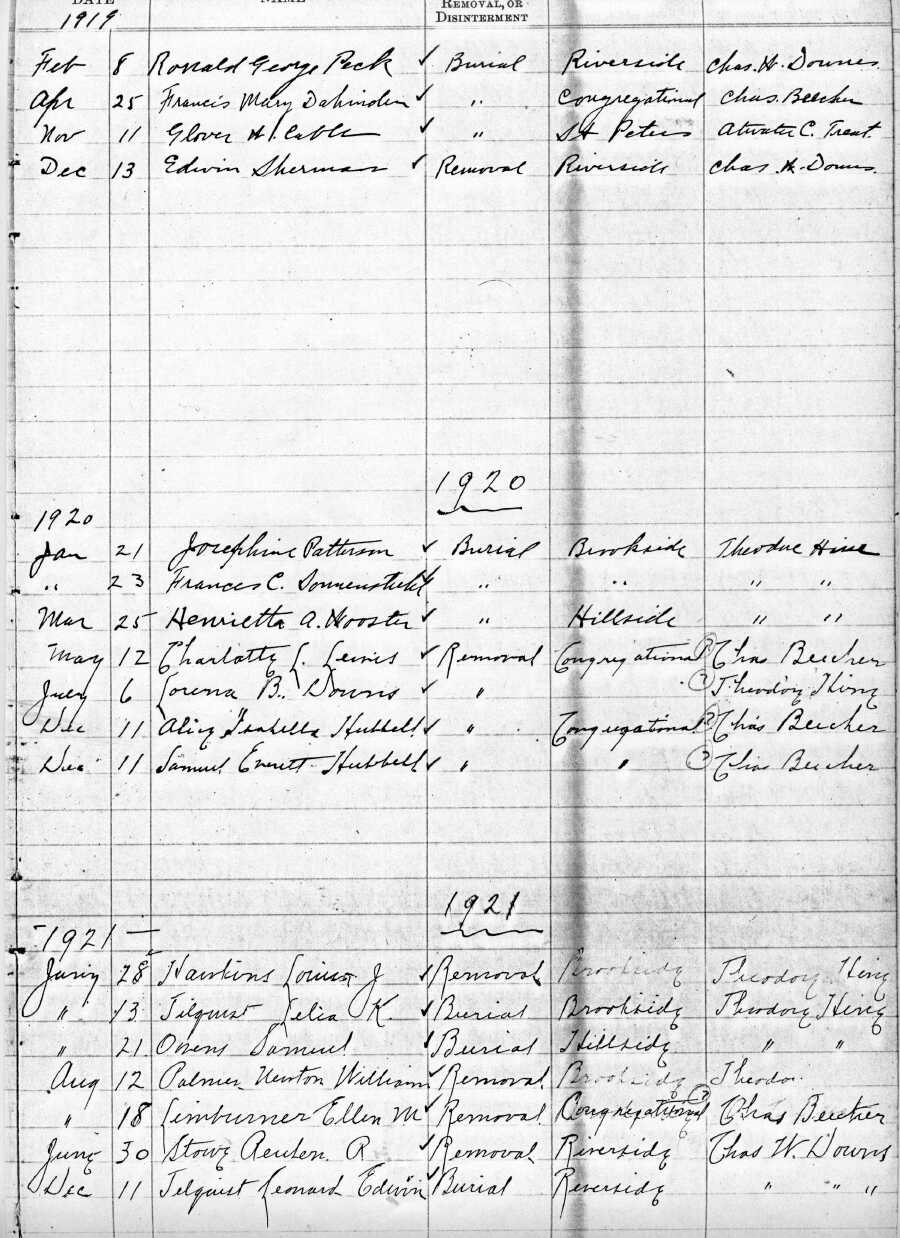 DATE NAME REMOVAL, OR DISINTERMENT
1919
Feb 8 Ronald George Peck ✓ Burial Riverside Chas. H. Downes.
Apr 25 Francis Mary Dahinden ✓ " Congregational Chas. Beecher
Nov 11 Glover H. Cable ✓ " St Peters Atwater C. Treat.
Dec 13 Edwin Sherman ✓ Removal Riverside Chas. H. Downs.
1920
1920
Jan 21 Josephine Patterson ✓ Burial Brookside Theodore Hine
" 23 Frances C. ✓ " " " "
Mar 25 Henrietta A. Wooster ✓ " Hillside " "
May 12 Charlotte L. Lewis ✓ Removal Congregational (?) Chas Beecher
July 6 Lorena B. Downs ✓ " (?) Theodore Hine
Dec 11 Alice Isabella Hubbell ✓ " Congregational (?) Chas Beecher
Dec 11 Samuel Everett Hubbell ✓ " " (?) Chas Beecher
1921
-1921-
June 28 Hawkins Louisa J ✓ Removal Brookside Theodore Hine
" 13 Tilquist Celia K. ✓ Burial Brookside Theodore Hine
" 21 Owens Samuel ✓ Burial Hillside " "
Aug 12 Palmer Newton William ✓ Removal Brookside Theodor
" 18 Limburner Ellen M ✓ Removal Congregational (?) Chas Beecher
June 30 Stowe Reuben R ✓ Removal Riverside Chas W. Downs
Dec 11 Telquist Leonard Edwin ✓ Burial Riverside " " "